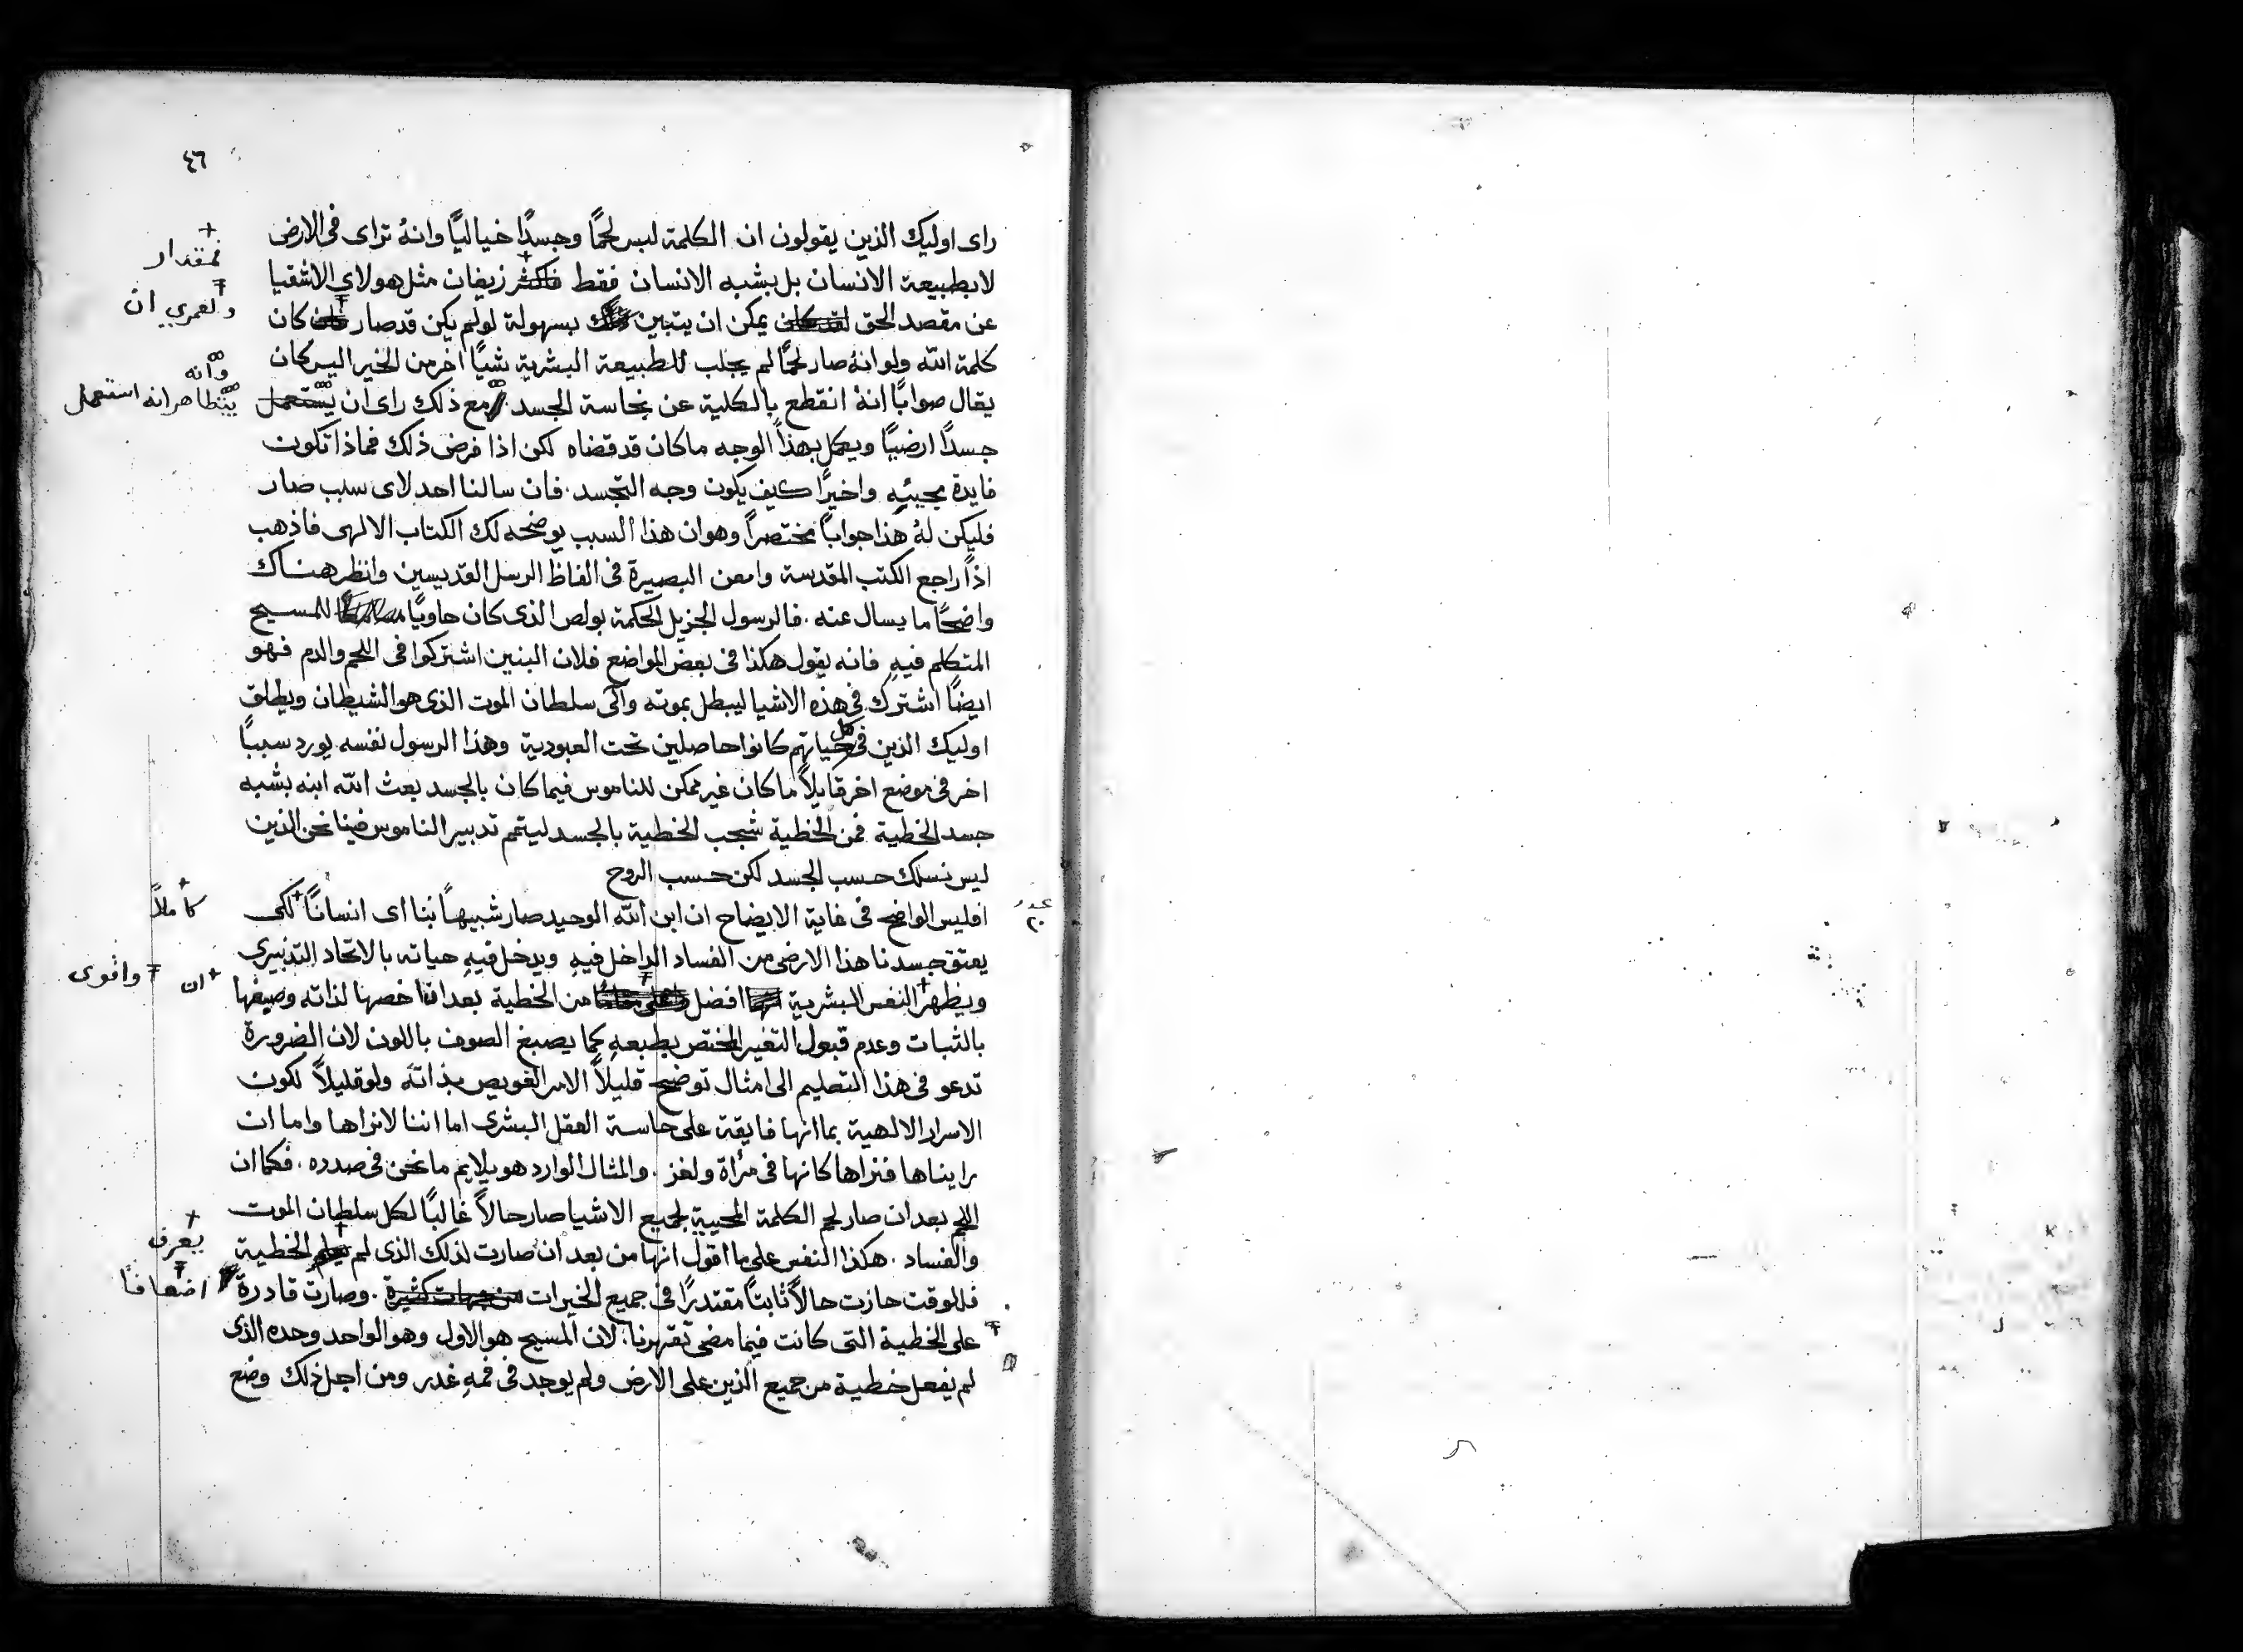 ٤٦
راى اوليك الذين يقولون ان الكلمة لبس لحمًا وجسدًا خياليًا وانهُ تراى في الارض
لا بطبيعة الانسان بل بشبه الانسان فقط فاكثر زيغان مثل هولاى الاشقيا
فمقدار
عن مقصد الحق لقد كان يمكن ان يتبين بسهولة لو لم يكن قد صار كان
ولعمري ان
كلمة الله ولو انهُ صار لحمًا لم يجلب للطبيعة البشرية شيًا اخر من الخير اليس كان
وانه
يقال صوابًا انهُ انقطع بالكلية عن نجاسة الجسد مع ذلك راى ان يستعمل
يتظاهر انه استعمل
جسدًا ارضيًا ويعمل بهذا الوجه ما كان قد قضاه لكن اذا فرض ذلك فماذا تكون
فايدة مجيئهِ واخيرًا كيف يكون وجه التجسد. فان سالنا احد لاى سبب صار
فليكن لهُ هذا جوابًا مختصرًا وهو ان هذا السبب يوضحه لك الكتاب الالهى فاذهب
اذًا راجع الكتب المقدسة وامعن البصيرة في الفاظ الرسل القديسين وانظر هناك
واضحًا ما يسال عنه. فالرسول الجزيل الحكمة بولص الذى كان حاويًا للمسيح
المتكلم فيهِ فانه يقول هكذا في بعض المواضع فلان البنين اشتركوا في اللحم والدم فهو
ايضًا اشترك في هذه الاشيا ليبطل بموته والى سلطان الموت الذى هو الشيطان ويطلق
اوليك الذين في كل حياتهم كانوا حاصلين تحت العبودية وهذا الرسول نفسه يورد سببًا
اخر في موضع اخر قايلاً ما كان غير ممكن للناموس فيما كان بالجسد بعث الله ابنه بشبه
جسد الخطية فمن الخطية شجب الخطية بالجسد ليتمم تدبير الناموس فينا نحن الذين
ليس نسلك حسب الجسد لكن حسب الروح
عدد ٢٠
افليس الواضح في غاية الايضاح ان ابن الله الوحيد صار شبيهًا بنا اى انسانًا لكى
كاملاً
يعتق جسدنا هذا الارضى من الفساد الداخل فيهِ ويدخل فيهِ حياته بالاتحاد التدبيري
ويظهر النفس البشرية افضل من الخطية بعد اذ اخصها لذاته وصبغها
ان واقوى
بالثبات وعدم قبول التغير المختص بطبعهِ كما يصبغ الصوف باللون لان الضرورة
تدعو في هذا التعليم الى امثال توضح قليلاً الامر الغويص بذاته ولو قليلاً لكون
الاسرار الالهية بما انها فايقة على حاسة العقل البشرى اما اننا لا نراها واما ان
رايناها فنراها كانها في مرأة ولغز. والمثال الوارد هو يلايم ما نحن في صدده. فكما ان
اللحم بعد ان صار لحم الكلمة المحيية لجميع الاشيا صار حالاً غالبًا لكل سلطان الموت
والفساد. هكذا النفس على ما اقول انها من بعد ان صارت لذلك الذى لم يعلم الخطية
يعرف
فللوقت حازت حالاً ثابتًا مقتدرًا في جميع الخيرات من جهات كثيرة. وصارت قادرة
اضعافًا
على الخطية التى كانت فيما مضى تقهرنا. لان المسيح هو الاول وهو الواحد وحده الذى
لم يفعل خطية من جميع الذين على الارض ولم يوجد في فمهِ غدر ومن اجل ذلك وضع